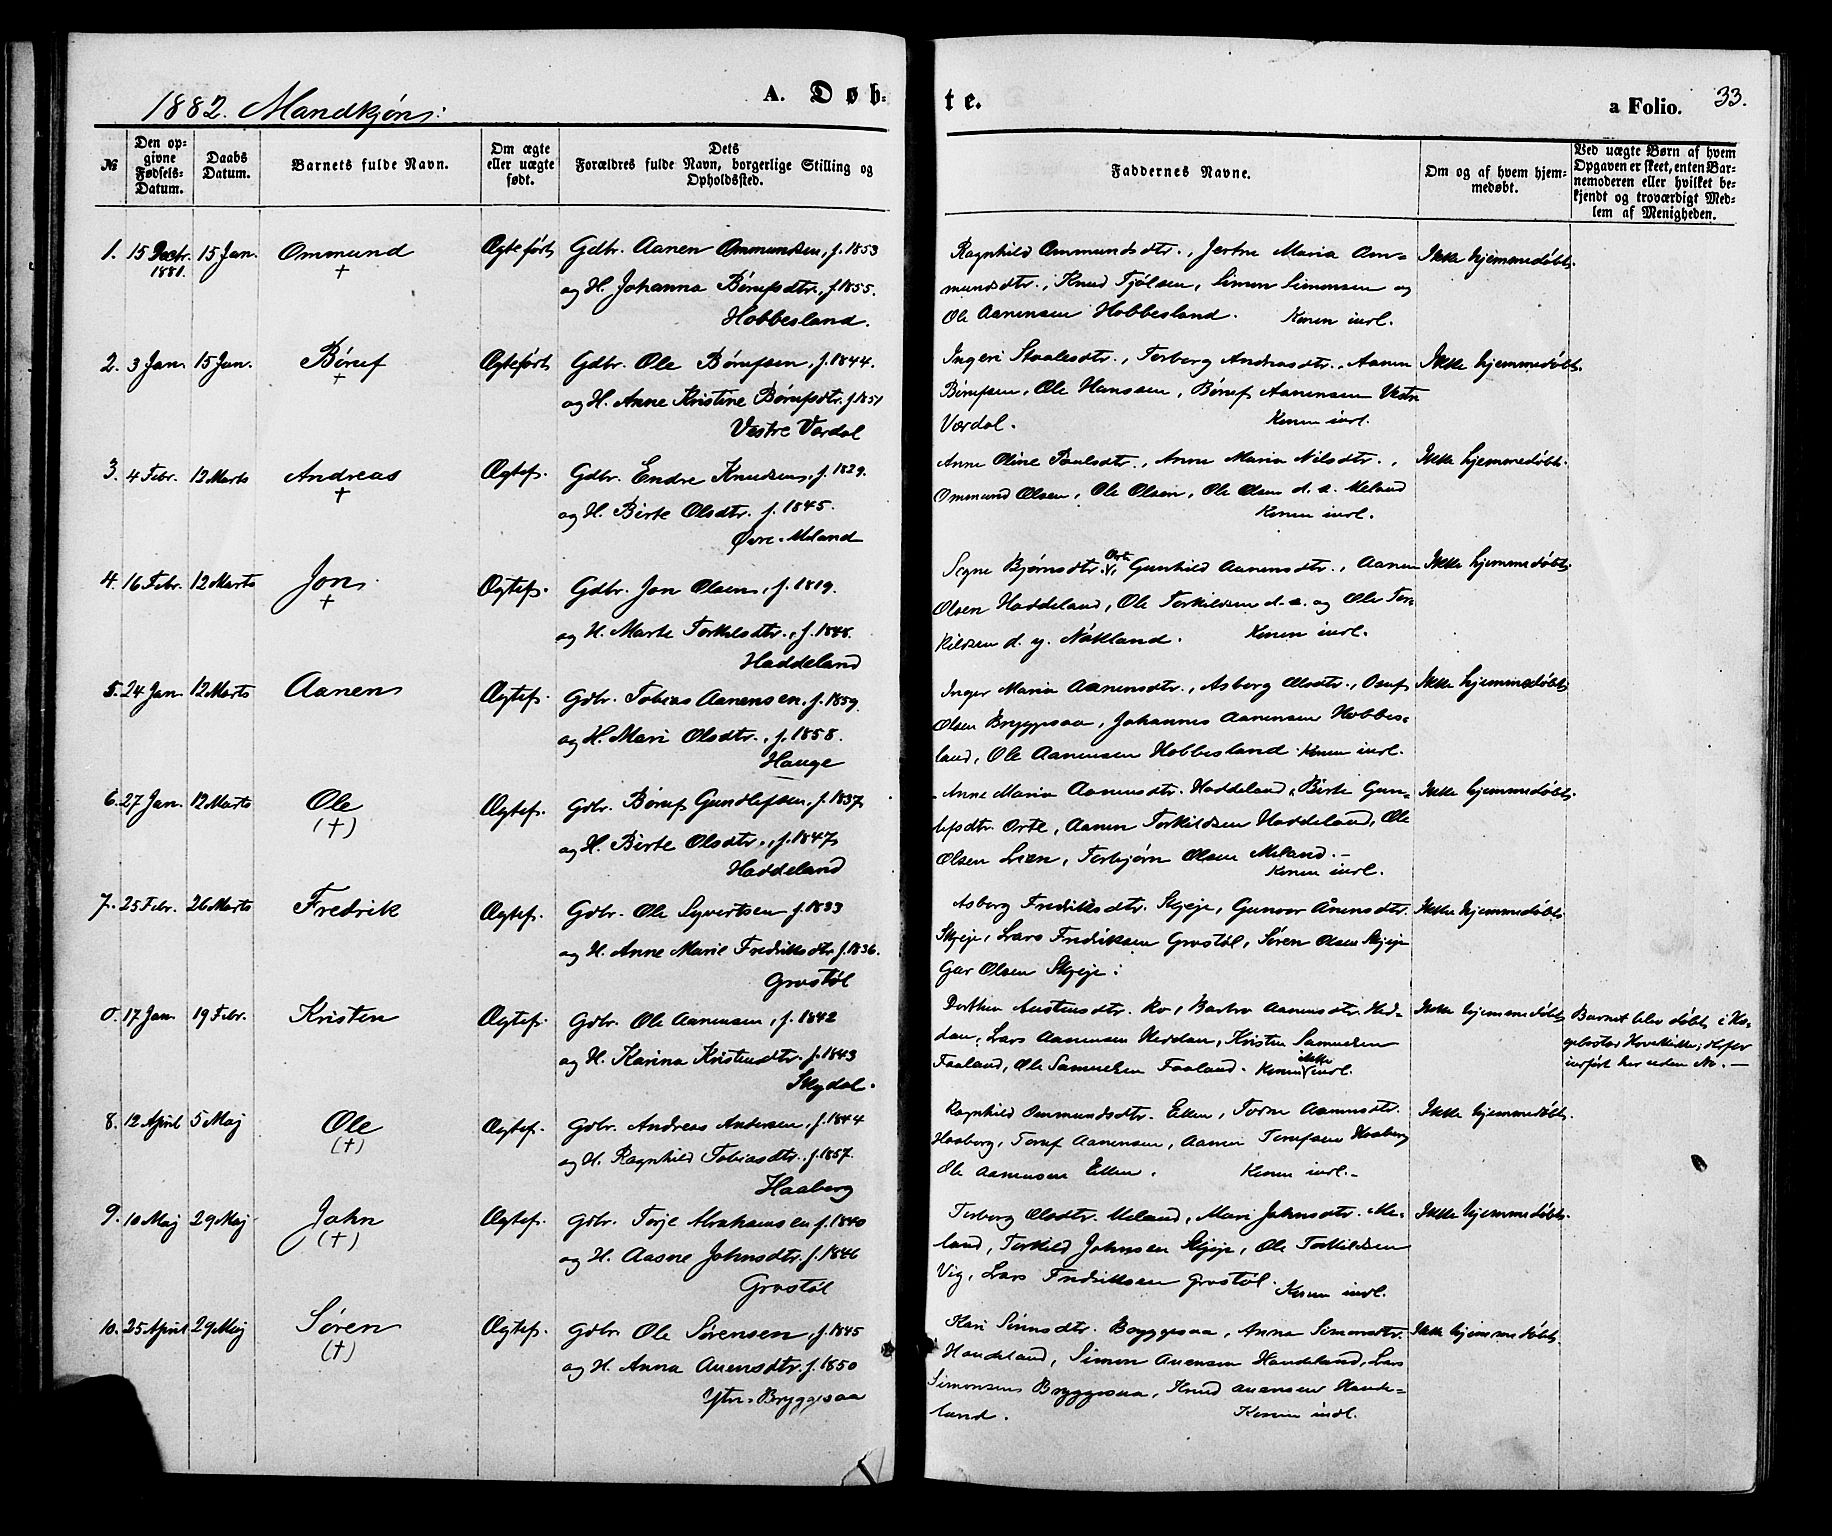 1882. Mandkjøn:
A. Døb-
te.
a Folio. 33.
№
Den op-
givne
Fødsels-
Datum.
Daabs
Datum.
Barnets fulde Navn.
Om ægte
eller uægte
født.
Dets
Forældres fulde Navn, borgerlige Stilling og
Opholdssted.
Faddernes Navne.
Om og af hvem hjem-
medøbt.
Ved uægte Børn af hvem
Opgaven er skeet, enten Bar-
nemoderen eller hvilket be-
kjendt og troværdigt Med-
lem af Menigheden.
1. 15 Decbr. 15 Jan. Ommund Ægtefødt Gdbr. Aanen Ommundsen, f. 1853
1881. +
og H. Johanna Børufsdtr., f. 1855.
Hobbesland.
Ragnhild Ommundsdtr., Jertru Maria Om- Ikke hjemmedøbt.
mundsdtr., Knud Fjølsen, Simon Simonsen og
Ole Aanensen Hobbesland. Konen indl.
2. 3 Jan. 15 Jan. Børuf Ægtefødt Gdbr. Ole Børufsen, f. 1844.
+
og H. Anne Kristine Børufsdtr. f. 1851
Vestre Vardal
Ingeri Staalesdtr., Torborg Andreasdtr., Aanen Ikke hjemmedøbt.
Børufsen, Ole Hanssen, Børuf Aanensen Vestre
Vardal. Konen indl.
3. 4 Febr. 12 Marts Andreas Ægtef. Gdbr. Endre Knudsen, f. 1829.
+
og H. Birte Olsdtr. f. 1845.
Øvre-Meland
Anne Oline Paulsdtr., Anne Maria Nilsdtr., Ikke hjemmedøbt.
Ommund Olsen, Ole Olsen, Ole Olsen d. æ. Meland
Konen indl.
4. 16 Febr. 12 Marts Jon Ægtef. Gdbr. Jon Olsen, f. 1819.
+
og H. Marte Torkelsdtr., f. 1848.
Haddeland
Signe Bjørnsdtr. Orte, Gunhild Aanensdtr., Aanen Ikke hjemmedøbt.
Olsen Haddeland, Ole Torkildsen d. æ. og Ole Tor-
kildsen d. y. Nökland. Konen indl.
5. 24 Jan. 12 Marts Aanen Ægtef. Gdbr. Tobias Aanensen, f. 1859.
og H. Mari Olsdtr., f. 1858.
Hauge
Inger Maria Aanensdtr., Asborg Olsdtr., Osuf Ikke hjemmedøbt
Olsen Bryggesaa, Johannes Aanensen Hobbes-
land, Ole Aanensen Hobbesland. Konen indl.
6. 27 Jan. 12 Marts Ole Ægtef. Gdbr. Børuf Gundlefsen, f. 1837
(+)
og H. Birte Olsdtr., f. 1847
Haddeland
Anne Maria Aanensdtr. Haddeland, Birte Gun- Ikke hjemmedøbt.
lefsdtr. Orte, Aanen Torkildsen Haddeland, Ole
Olsen Lien, Torbjørn Olsen Meland.
Konen indl.
7. 25 Febr. 26 Marts Fredrik Ægtef. Gdbr. Ole Syvertsen f. 1833
og H. Anne Marie Fredriksdtr. f. 1836.
Grostøl
Asborg Fredriksdtr. Skjeje, Gunvor Ånensdtr. Ikke hjemmedøbt
Skjeje, Lars Fredriksen Grostøl, Søren Olsen Skjeje
Olsen Skjeje.
0. 17 Jan. 19 Febr. Kristen Ægtef. Gdbr. Ole Aanensen, f. 1842
og H. Karina Kristensdtr. f. 1843
Skydal.
Dorthea Austensdtr. Ro, Barbro Aanensdtr. Hed- Ikke hjemmedøbt Barnet blev døbt i
dan, Lars Aanensen Heddan, Kristen Samuelsen Hovedkirke, derfor
Faaland, Ole Samuelsen Faaland. Konen ikke indl. indført her uden No. —
8. 12 April 5 Maj Ole Ægtef. Gdbr. Andreas Andersen, f. 1844
(+)
og H. Ragnhild Tobiasdtr. f. 1857.
Haaberg
Ragnhild Ommundsdtr. Ellen, Torne Aanensdtr. Ikke hjemmedøbt.
Haaberg, Toruf Aanensen, Aanen Torufsen Haaberg
Ole Aanensen Ellen. Konen indl.
9. 10 Maj 29 Maj John Ægtef. Gdbr. Torje Abrahamsen f. 1840
(+)
og H. Aasne Johnsdtr. f. 1846
Grostøl
Torborg Olsdtr. Meland, Mari Johnsdtr. Me- Ikke hjemmedøbt.
land, Torkild Johnsen Skjeje, Ole Torkildsen
Vig, Lars Fredriksen Grostøl. Konen indl.
10. 25 April 29 Maj Søren Ægtef. Gdbr. Ole Sørensen, f. 1845
(+)
og H. Anna Anensdtr. f. 1850
Ytre-Bryggesaa
Kari Simonsdtr. Bryggesaa, Anna Simonsdtr. Ikke hjemmedøbt.
Handeland, Simon Anensen Handeland, Lars
Simonsen Bryggesaa, Knud Anensen Hande-
land. Konen indl.